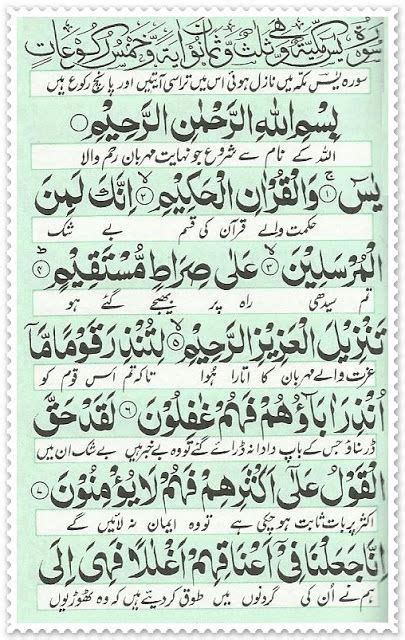 سورۃ یٰسٓ مکیۃ وھی ثلث وثمانون اٰیۃ وخمس رکوعات
سورہ یٰسٓ مکہ میں نازل ہوئی اس میں تراسی آیتیں اور پانچ رکوع ہیں
بِسْمِ اللهِ الرَّحْمٰنِ الرَّحِيْمِ
اللہ کے نام سے شروع جو نہایت مہربان رحم والا
يٰسٓ ۚ﴿۱﴾ وَالْقُرْاٰنِ الْحَكِيْمِ ۙ﴿۲﴾ اِنَّكَ لَمِنَ
حکمت والے قرآن کی قسم بے شک
الْمُرْسَلِيْنَ ۙ﴿۳﴾ عَلٰى صِرَاطٍ مُّسْتَقِيْمٍ ؕ﴿۴﴾
تم سیدھی راہ پر بھیجے گئے ہو
تَنْزِيْلَ الْعَزِيْزِ الرَّحِيْمِ ۙ﴿۵﴾ لِتُنْذِرَ قَوْمًا مَّاۤ
عزت والے مہربان کا اتارا ہوا تاکہ تم اس قوم کو
اُنْذِرَ اٰبَآؤُهُمْ فَهُمْ غٰفِلُوْنَ ﴿۶﴾ لَقَدْ حَقَّ
ڈر سناؤ جس کے باپ دادا نہ ڈرائے گئے تو وہ بے خبر ہیں بے شک ان میں
الْقَوْلُ عَلٰٓى اَكْثَرِهِمْ فَهُمْ لَا يُؤْمِنُوْنَ ﴿۷﴾
اکثر پر بات ثابت ہو چکی ہے تو وہ ایمان نہ لائیں گے
اِنَّا جَعَلْنَا فِىْٓ اَعْنَاقِهِمْ اَغْلٰلًا فَهِىَ اِلَى
ہم نے اُن کی گردنوں میں طوق کر دیئے ہیں کہ وہ ٹھوڑیوں